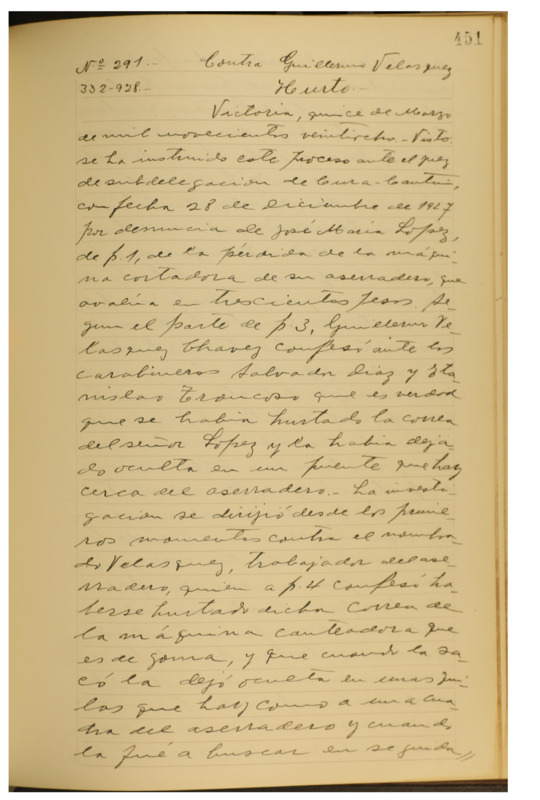 451
Nº 291.- Contra Guillermo Velasquez
332-928.- Hurto.-
Victoria, quince de Marzo
de mil novecientos veintiocho.- Visto:
se ha instruido este proceso ante el juez
de subdelegacion de Cura-Cautin,
con fecha 28 de Diciembre de 1927
por denuncia de José Maria Lopez,
de f. 1, de la pérdida de la máqui-
na cortadora de su aserradero, que
avalúa en trescientos pesos. Se-
gun el parte de f. 3, Guillermo Ve-
lasquez Chavez confesó ante los
carabineros Salvador Diaz y Sta-
nislao Troncoso que es verdad
que se habia hurtado la correa
del señor Lopez y la habia deja-
do oculta en un puente que hay
cerca del aserradero.- La investi-
gacion se dirijió desde los prime-
ros momentos contra el nombra-
do Velasquez, trabajador del ase-
rradero, quien a f. 4 confesó ha-
berse hurtado dicha correa de
la máquina canteadora que
es de goma, y que cuando la sa-
có la dejó oculta en unas qui-
las que hay como a una cua-
dra del aserradero y cuando
la fué a buscar en seguida